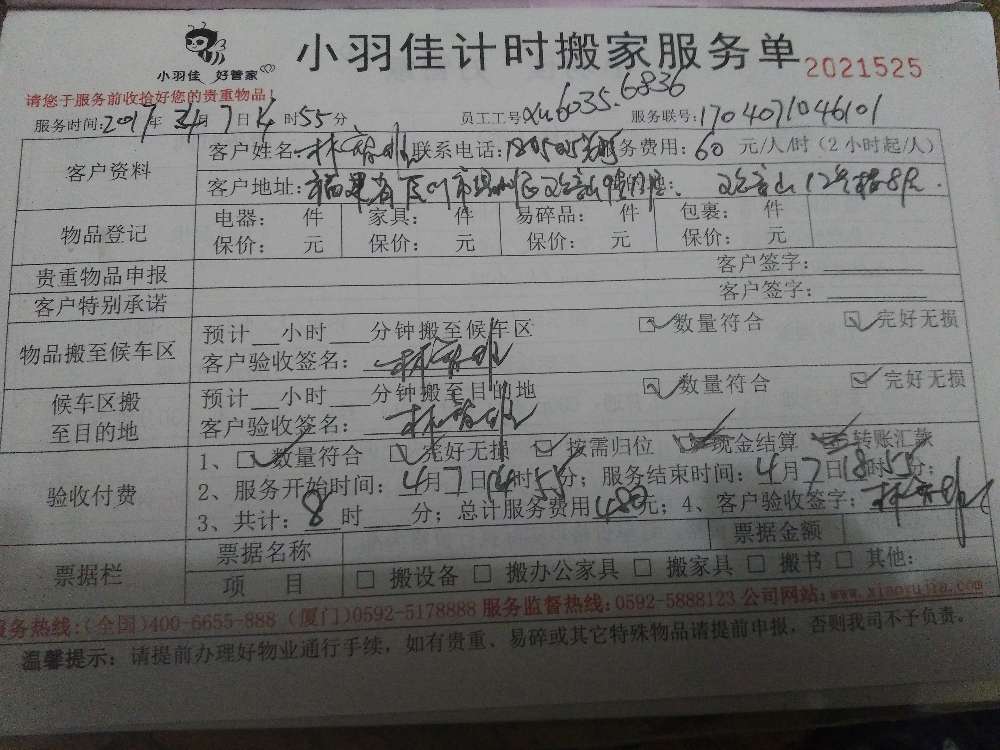 小羽佳 好管家
小羽佳计时搬家服务单 2021525
请您于服务前收拾好您的贵重物品!
服务时间:2017年4月7日14时55分 员工工号 6035.6836 服务联号:1704071046101
客户资料 客户姓名: 联系电话: 服务费用:60 元/人/时(2小时起/人)
客户地址:福建省 市 12号楼8
物品登记 电器: 件 家具: 件 易碎品: 件 包裹: 件
保价: 元 保价: 元 保价: 元 保价: 元
贵重物品申报 客户签字:
客户特别承诺 客户签字:
物品搬至候车区 预计__小时___分钟搬至候车区 数量符合 完好无损
客户验收签名:
候车区搬至目的地 预计__小时___分钟搬至目的地 数量符合 完好无损
客户验收签名:
验收付费 1、数量符合 完好无损 按需归位 现金结算 转账汇款
2、服务开始时间:4月7日14时55分; 服务结束时间:4月7日18时55分;
3、共计:8时____分; 总计服务费用480元; 4、客户验收签字:
票据栏 票据名称 票据金额
项 目 □ 搬设备 □ 搬办公家具 □ 搬家具 □ 搬书 □ 其他:
服务热线:(全国)400-6655-888 (厦门)0592-5178888 服务监督热线:0592-5888123 公司网站:www.xiaoyujia.com
温馨提示:请提前办理好物业通行手续,如有贵重、易碎或其它特殊物品请提前申报,否则我司不予负责。